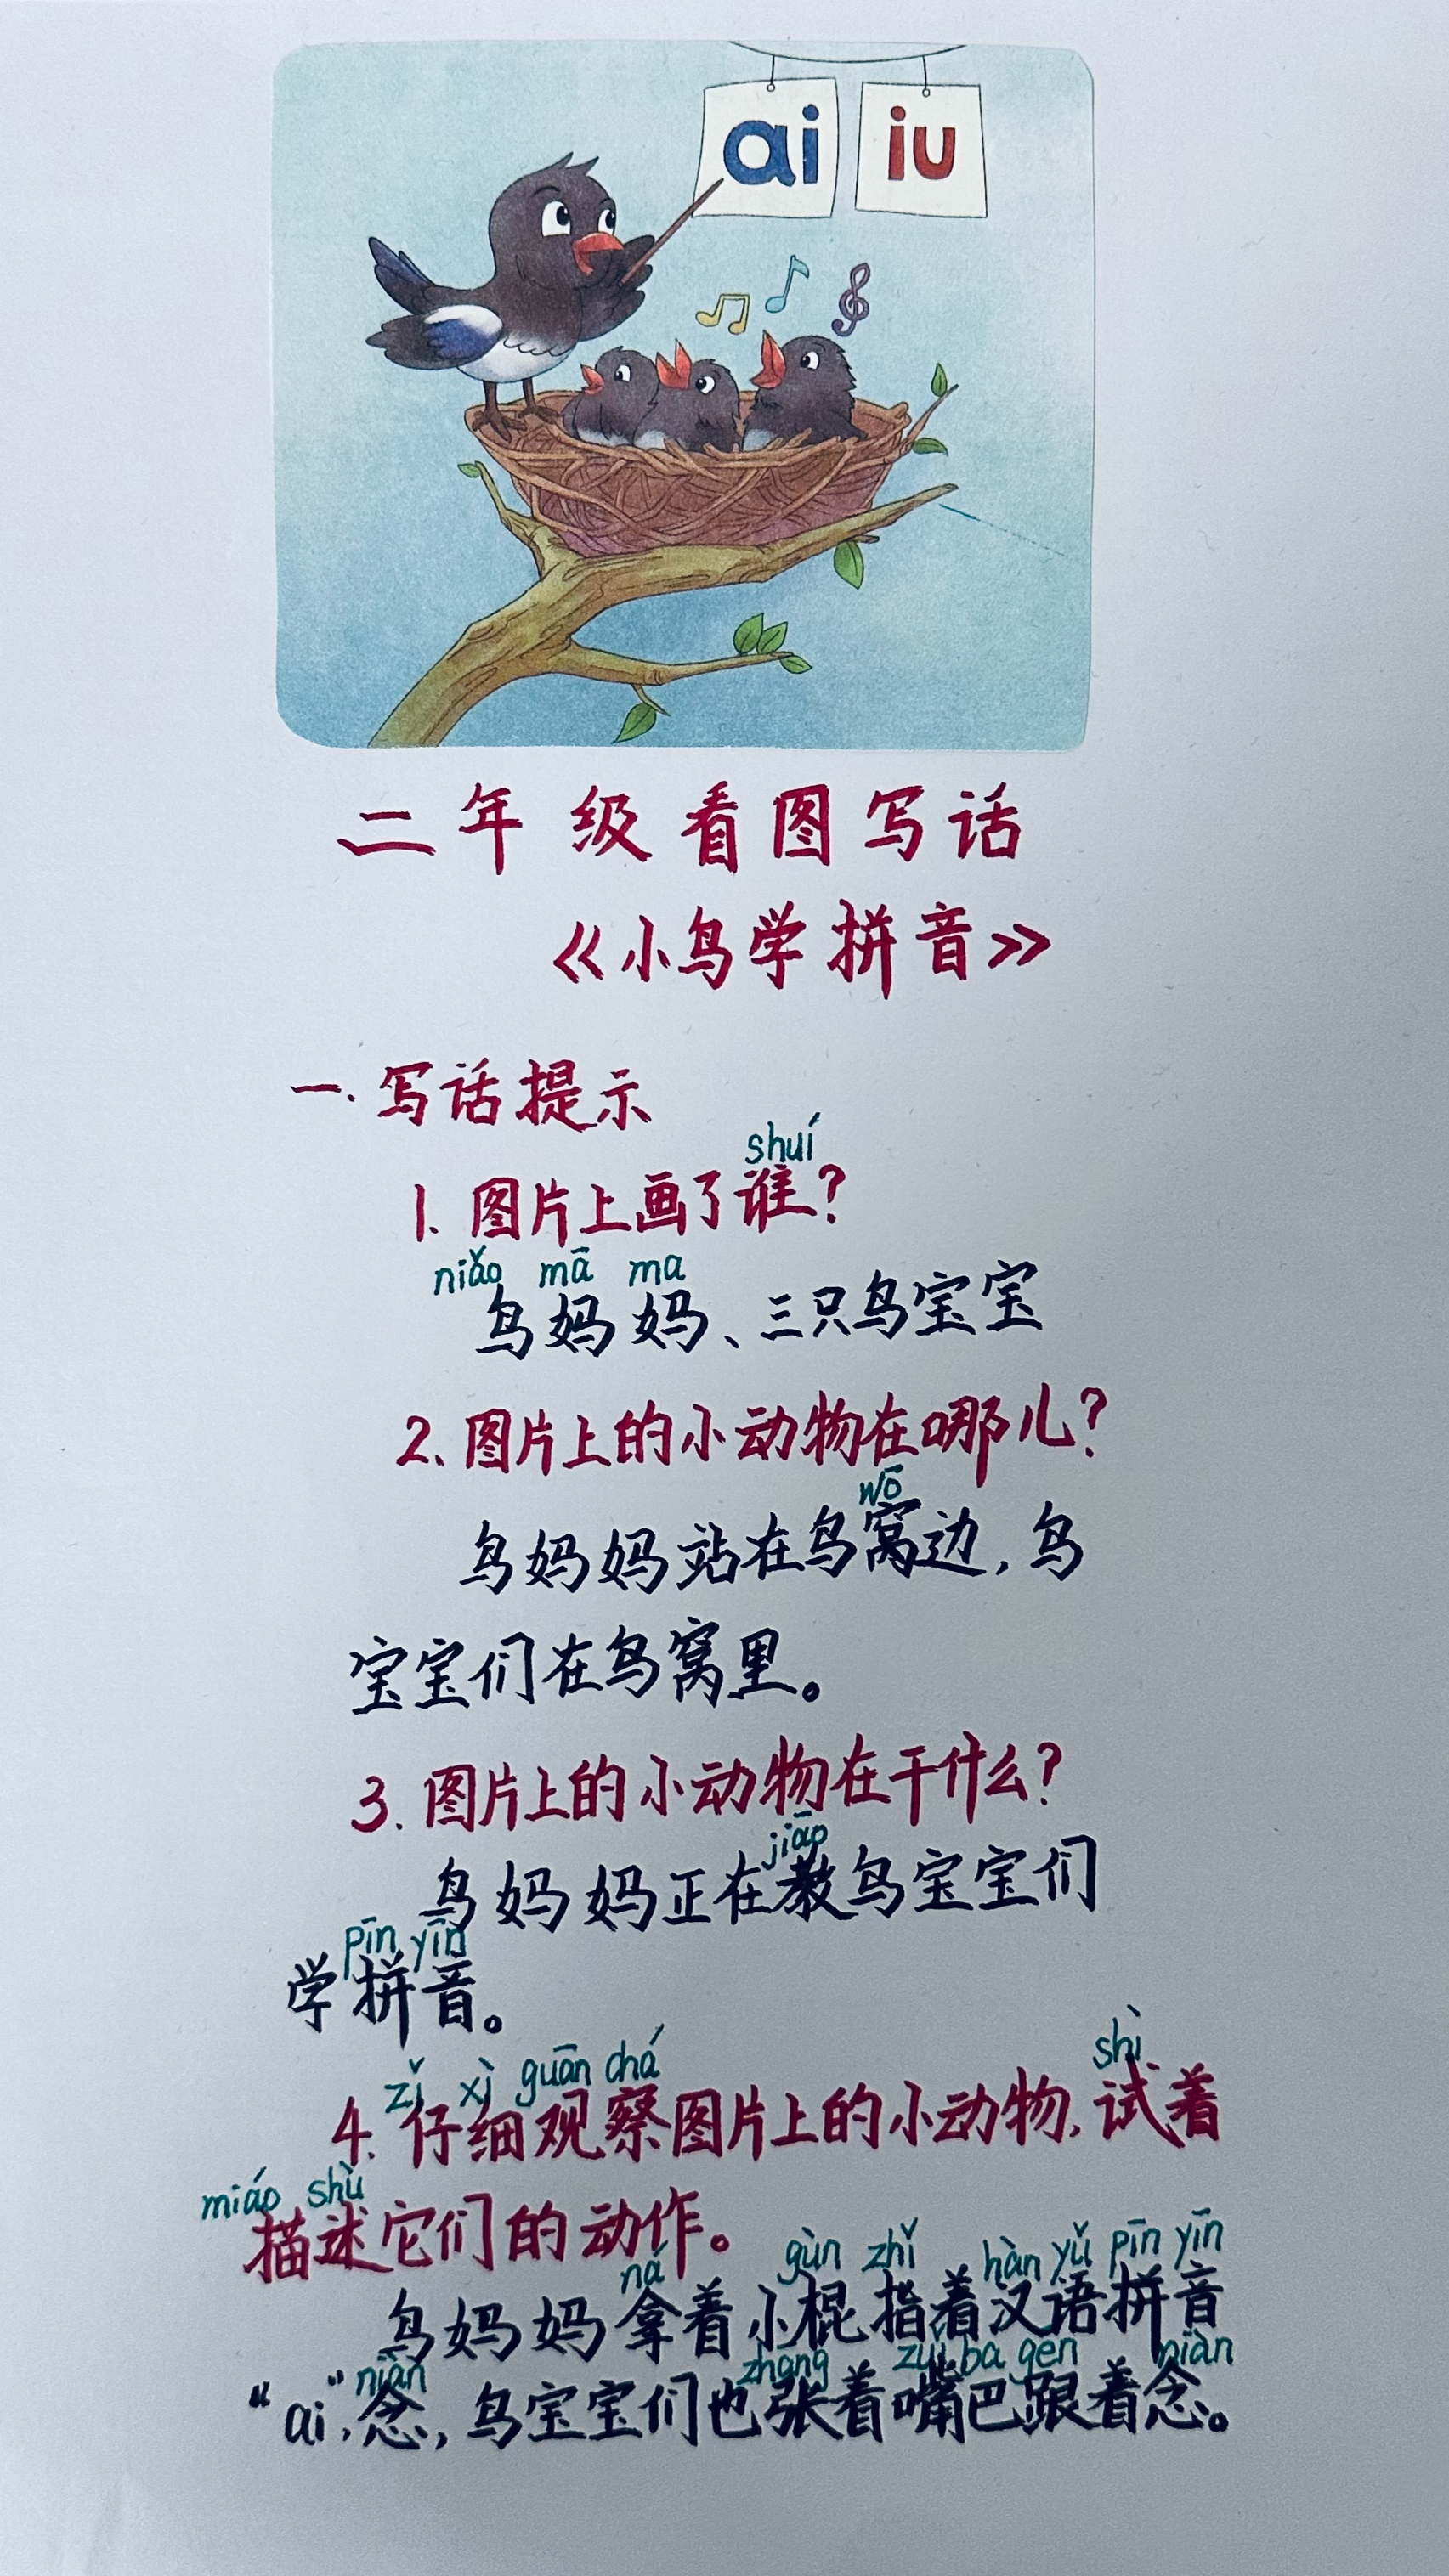 ai iu
二年级看图写话
《小鸟学拼音》
一.写话提示
shuí
1.图片上画了谁?
niǎo mā ma
鸟妈妈、三只鸟宝宝
2.图片上的小动物在哪儿?
wō
鸟妈妈站在鸟窝边,鸟
宝宝们在鸟窝里。
3.图片上的小动物在干什么?
jiāo
鸟妈妈正在教鸟宝宝们
pīn yīn
学拼音。
zǐ xì guān chá shì
4.仔细观察图片上的小动物,试着
miáo shù
描述它们的动作。
ná gùn zhǐ hàn yǔ pīn yīn
鸟妈妈拿着小棍指着汉语拼音
niàn zhāng zuǐ ba gēn niàn
“ai”,念,鸟宝宝们也张着嘴巴跟着念。